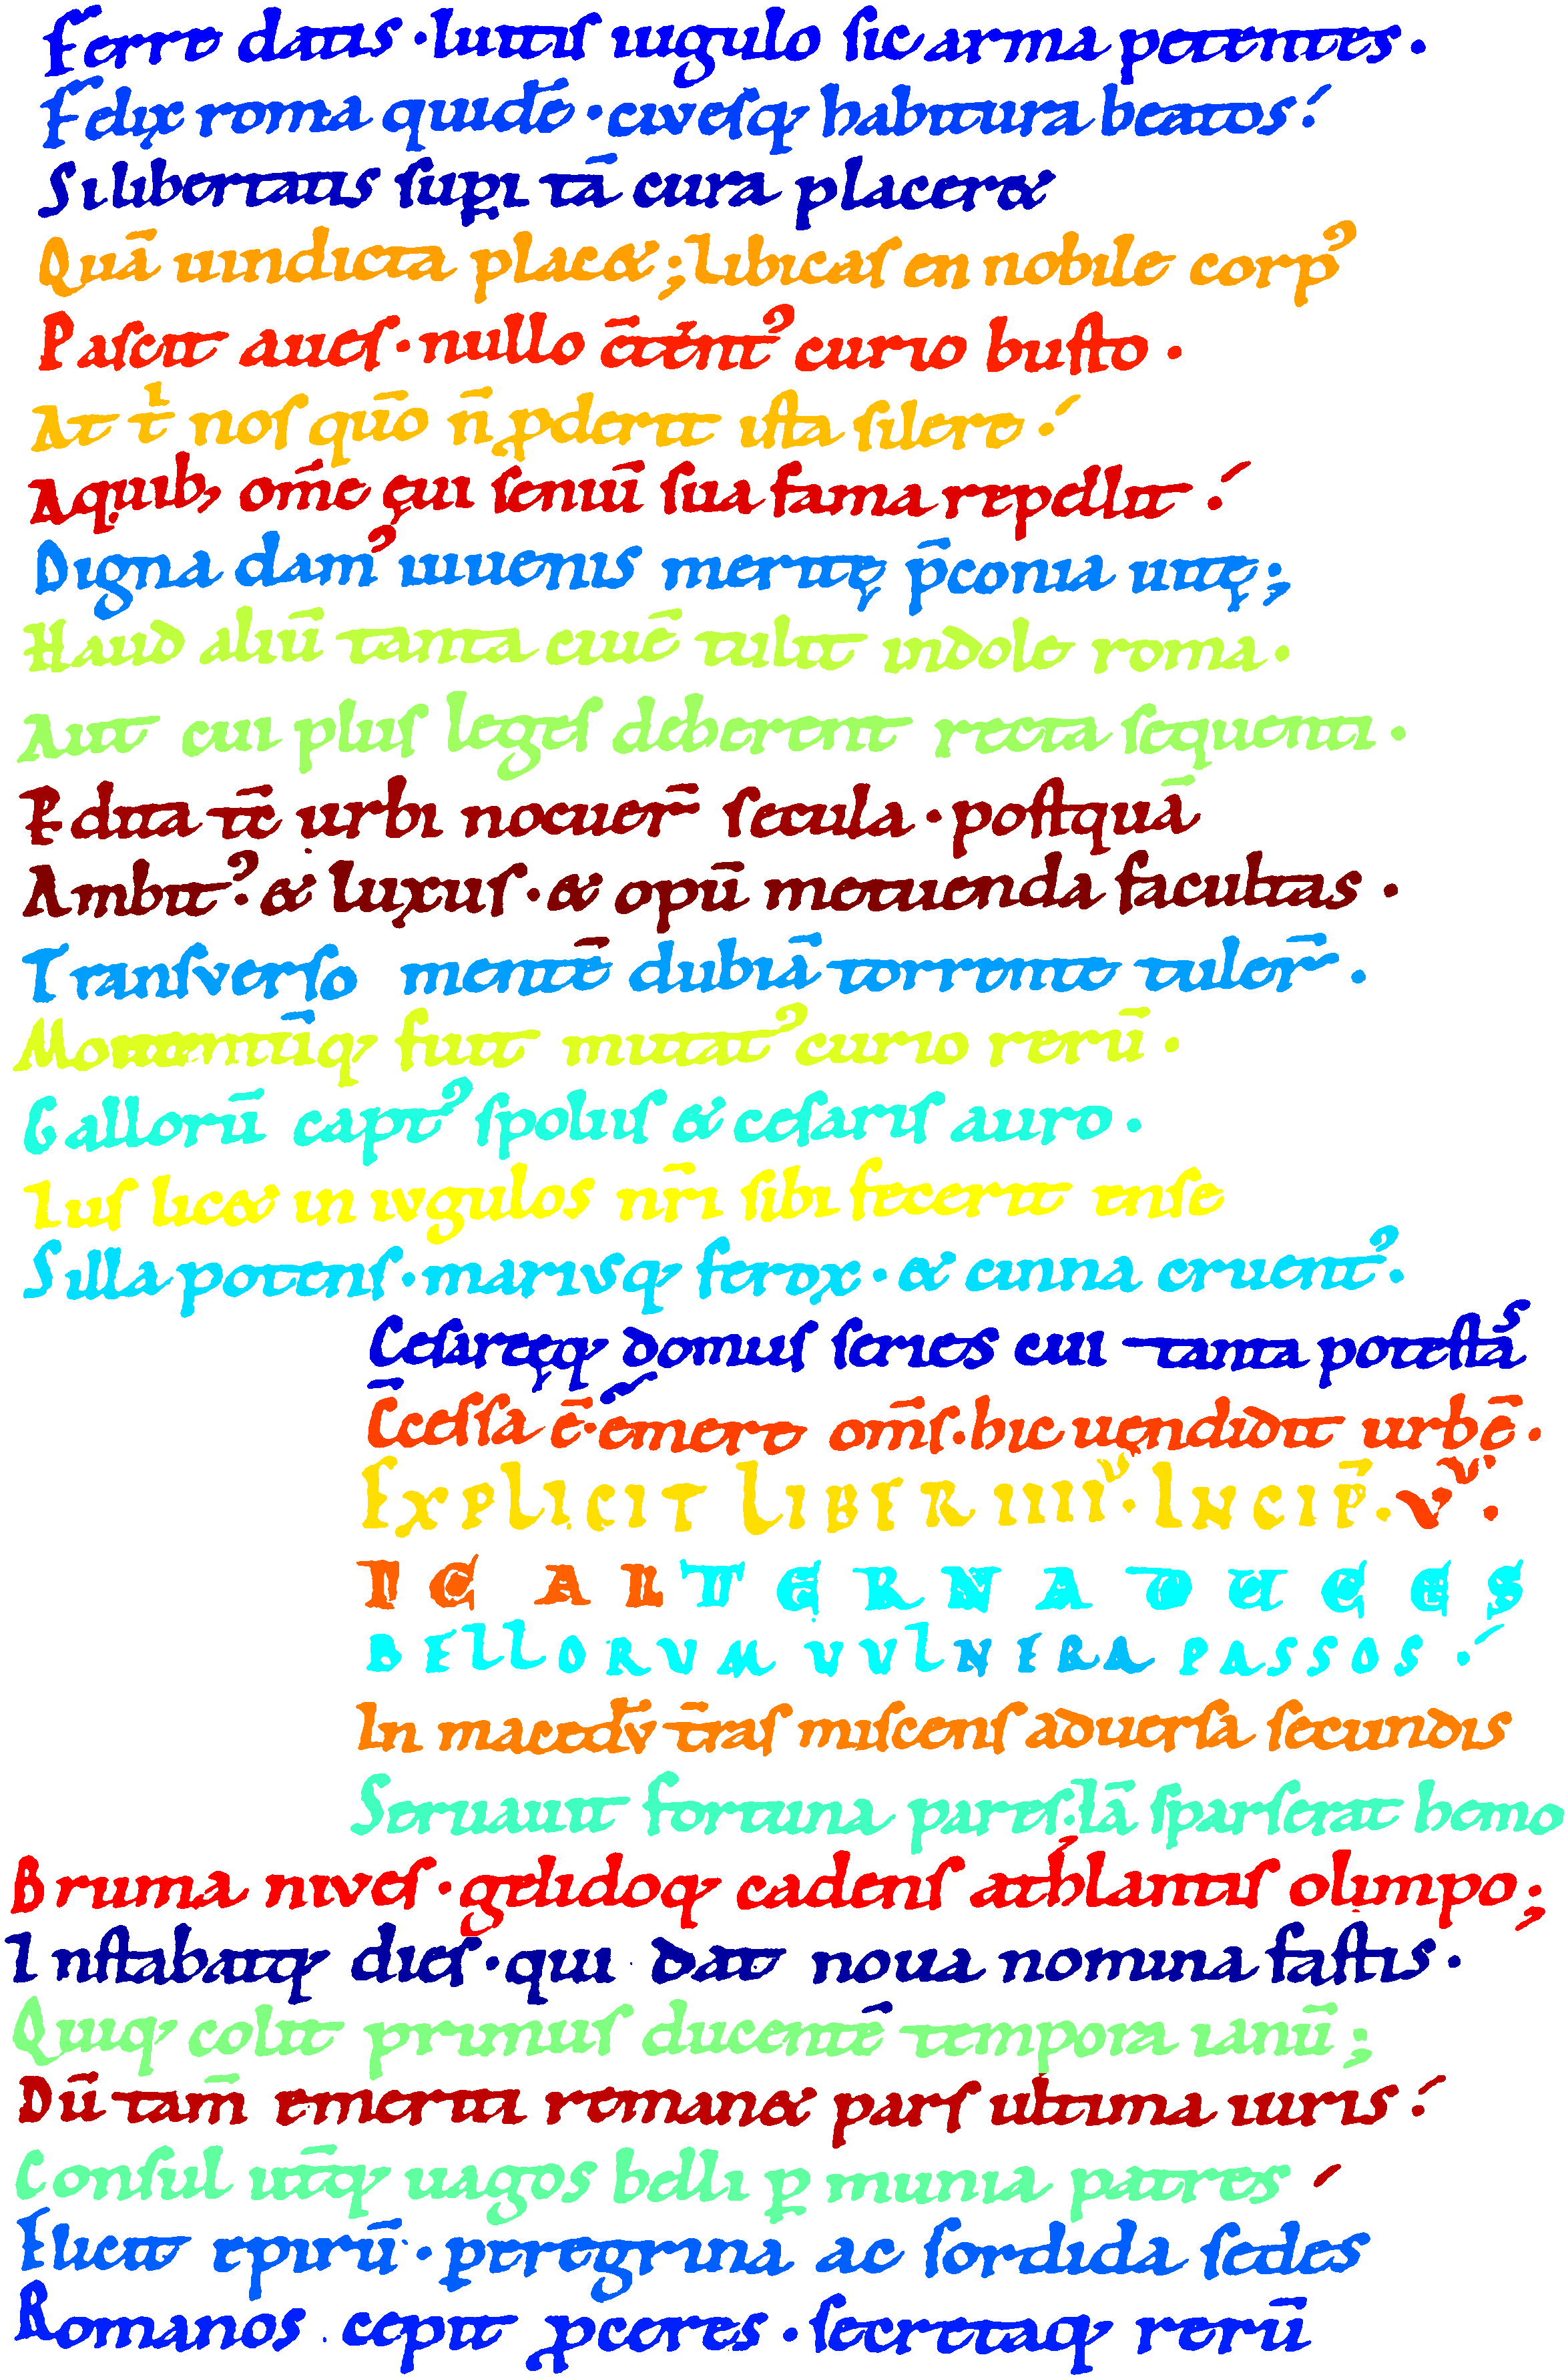 Ferro datis · luitis iugulo sic arma petentes ·
Felix roma quidē · civesq; habitura beatos :́
Si libertatis supi tā cura placeret
Quā uindicta placet ; Libicas en nobile corpꝰ
Pascit aues · nullo c̄tēntꝰ curio busto ·
At t̄ nos quō n̄ ꝓderit ista silere :́
A quib; om̄e ęui seniū sua fama repellit :́
Digna damꝰ iuuenis meritę p̄conia uitę ;
Haud aliū tanta ciuē tulit indole roma ·
Aut cui plus leges deberent recta sequenti ·
Ꝑdita tc̄ urbi nocuer̄ secula · postquā
Ambitꝰ & luxus · & opū metuenda facultas ·
Transverso mentē dubiā torrente tuler̄ ·
Momentūq; fuit mutatꝰ curio rerū ·
Gallorū captꝰ spoliis & cesaris auro ·
Ius licet in iugulos nr̄i sibi fecerit ense
Silla potens · mariusq; ferox · & cinna cruentꝰ ·
Cesareęq; domus series cui tanta potestas
C̄cessa ē · emere om̄s · hic uendidit urbē ·
EXPLICIT LIBER IIII · INCIP̄ · V ·
IC ALTERNA DUCES
BELLORVM VVLNERA PASSOS :́
In macedū tr̄as miscens aduersa secundis
Seruauit fortuna pares · Iā sparserat hemo
Bruma nives · gelidoq; cadens athlantis olimpo ;
Instabatq; dies · qui dat noua nomina fastis ·
Quiq; colit primus ducentē tempora ianū ;
Dū tam̄ emeriti remanet pars ultima iuris :́
Consul ut̄q; uagos belli ꝑ munia patres
Elicit epirū · peregrina ac sordida sedes
Romanos cepit ꝓceres · secretaq; rerū